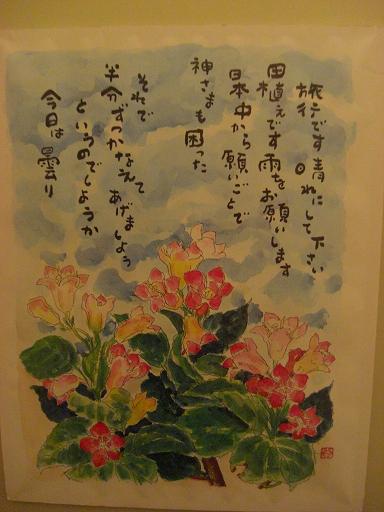 旅行です晴れにして下さい
田植えです雨をお願いします
日本中から願いごとで
神さまも困った
それで
半分ずつかなえてあげましょう
というのでしょうか
今日は曇り